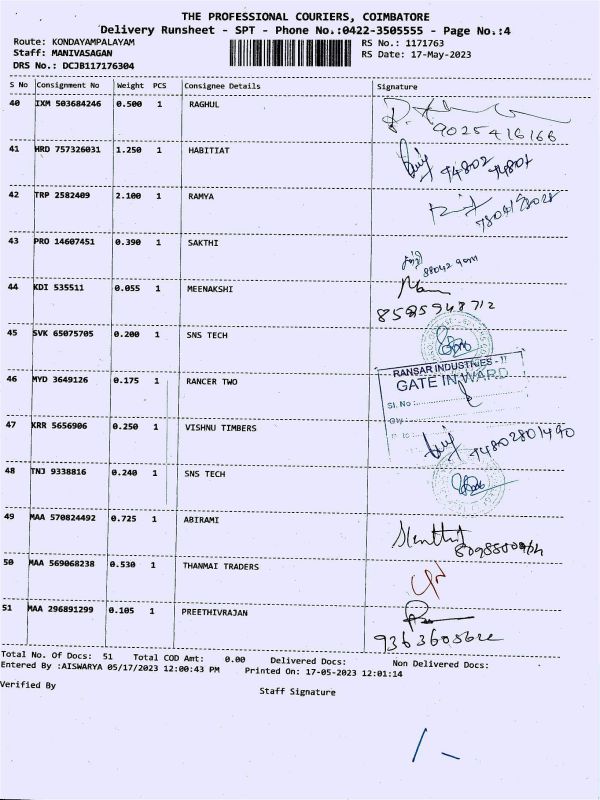 THE PROFESSIONAL COURIERS, COIMBATORE
Delivery Runsheet - SPT - Phone No.:0422-3505555 - Page No.:4
Route: KONDAYAMPALAYAM RS No.: 1171763
Staff: MANIVASAGAN RS Date: 17-May-2023
DRS No.: DCJB117176304
S No Consignment No Weight PCS Consignee Details Signature
40 IXM 503684246 0.500 1 RAGHUL
9025416166
41 HRD 757326031 1.250 1 HABITIAT
94802
42 TRP 2582409 2.100 1 RAMYA
43 PRO 14607451 0.390 1 SAKTHI
44 KDI 535511 0.055 1 MEENAKSHI
8595948712
45 SVK 65075705 0.200 1 SNS TECH
RANSAR INDUSTRIES - II
46 MYD 3649126 0.175 1 RANCER TWO GATE IN WARD
Sl. No :
47 KRR 5656906 0.250 1 VISHNU TIMBERS
94802801490
48 TNJ 9338816 0.240 1 SNS TECH
49 MAA 570824492 0.725 1 ABIRAMI
50 MAA 569068238 0.530 1 THANMAI TRADERS
51 MAA 296891299 0.105 1 PREETHIVRAJAN
Total No. Of Docs: 51 Total COD Amt: 0.00 Delivered Docs: Non Delivered Docs:
Entered By :AISWARYA 05/17/2023 12:00:43 PM Printed On: 17-05-2023 12:01:14
Verified By Staff Signature